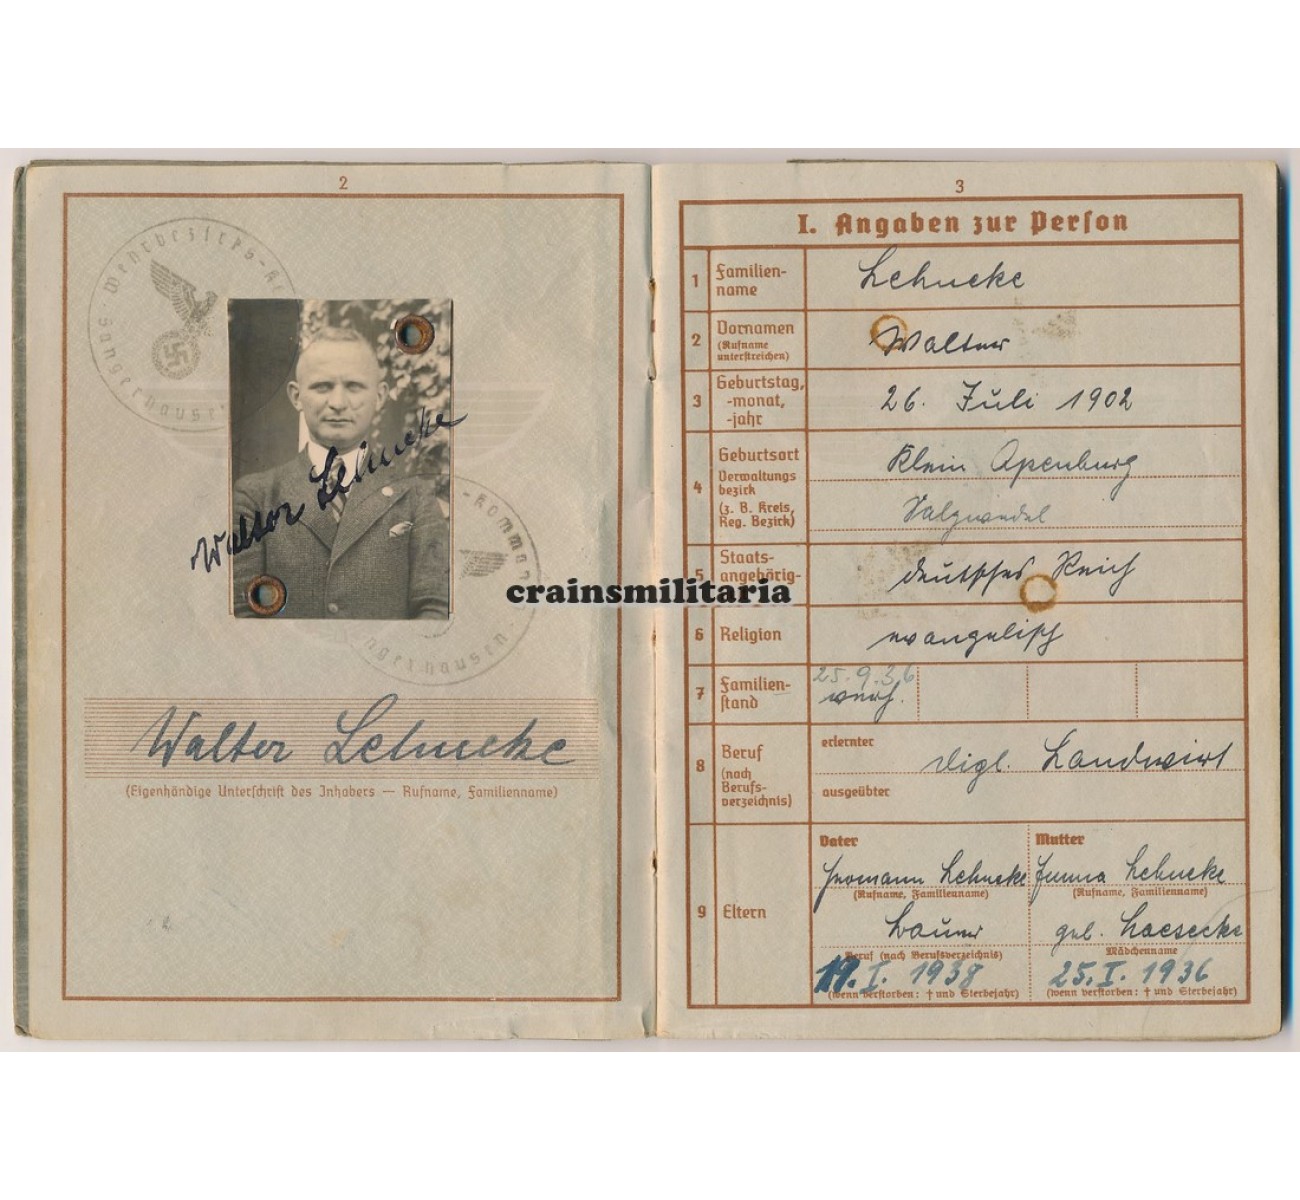 2
Wehrbezirks-Ko
Sangerhausen
Walter Lehnecke
-Komman
ngerhausen
Walter Lehnecke
(Eigenhändige Unterschrift des Inhabers — Rufname, Familienname)
3
I. Angaben zur Person
1 Familien-
name
Lehnecke
2 Vornamen
(Rufname
unterstreichen)
Walter
3 Geburtstag,
-monat,
-jahr
26. Juli 1902
4 Geburtsort
Verwaltungs
bezirk
(z. B. Kreis,
Reg. Bezirk)
Klein Apenburg
Salzwedel
5 Staats-
angehörig-
deutsches Reich
crainsmilitaria
6 Religion
evangelisch
7 Familien-
stand
25.9.36
verh.
8 Beruf
(nach
Berufs-
verzeichnis)
erlernter
dipl. Landwirt
ausgeübter
9 Eltern
Vater
Hermann Lehnecke
(Rufname, Familienname)
Bauer
Beruf (nach Berufsverzeichnis)
I. 1938
(wenn verstorben: † und Sterbejahr)
Mutter
Lehnecke
(Rufname, Familienname)
geb.
Mädchenname
25. I. 1936
(wenn verstorben: † und Sterbejahr)